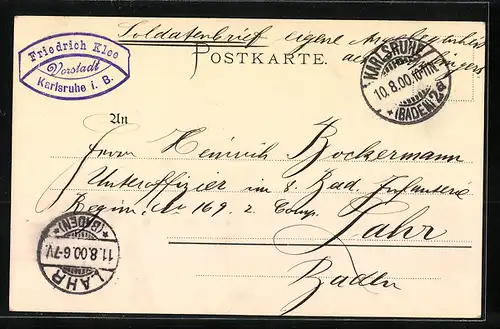 Soldatenbrief eigene Angelegenheit
des Empfängers
POSTKARTE.
Friedrich Klee
Vorstadt
Karlsruhe i. B.
KARLSRUHE
10.8.00
*(BADEN)2a
An
Herrn Heinrich Bockermann
Unteroffizier im 8. Bad. Infanterie
Regim. No 169. 2. Comp.
Lahr
Baden
*(BADEN)*
11.8.00.6-7V.
LAHR